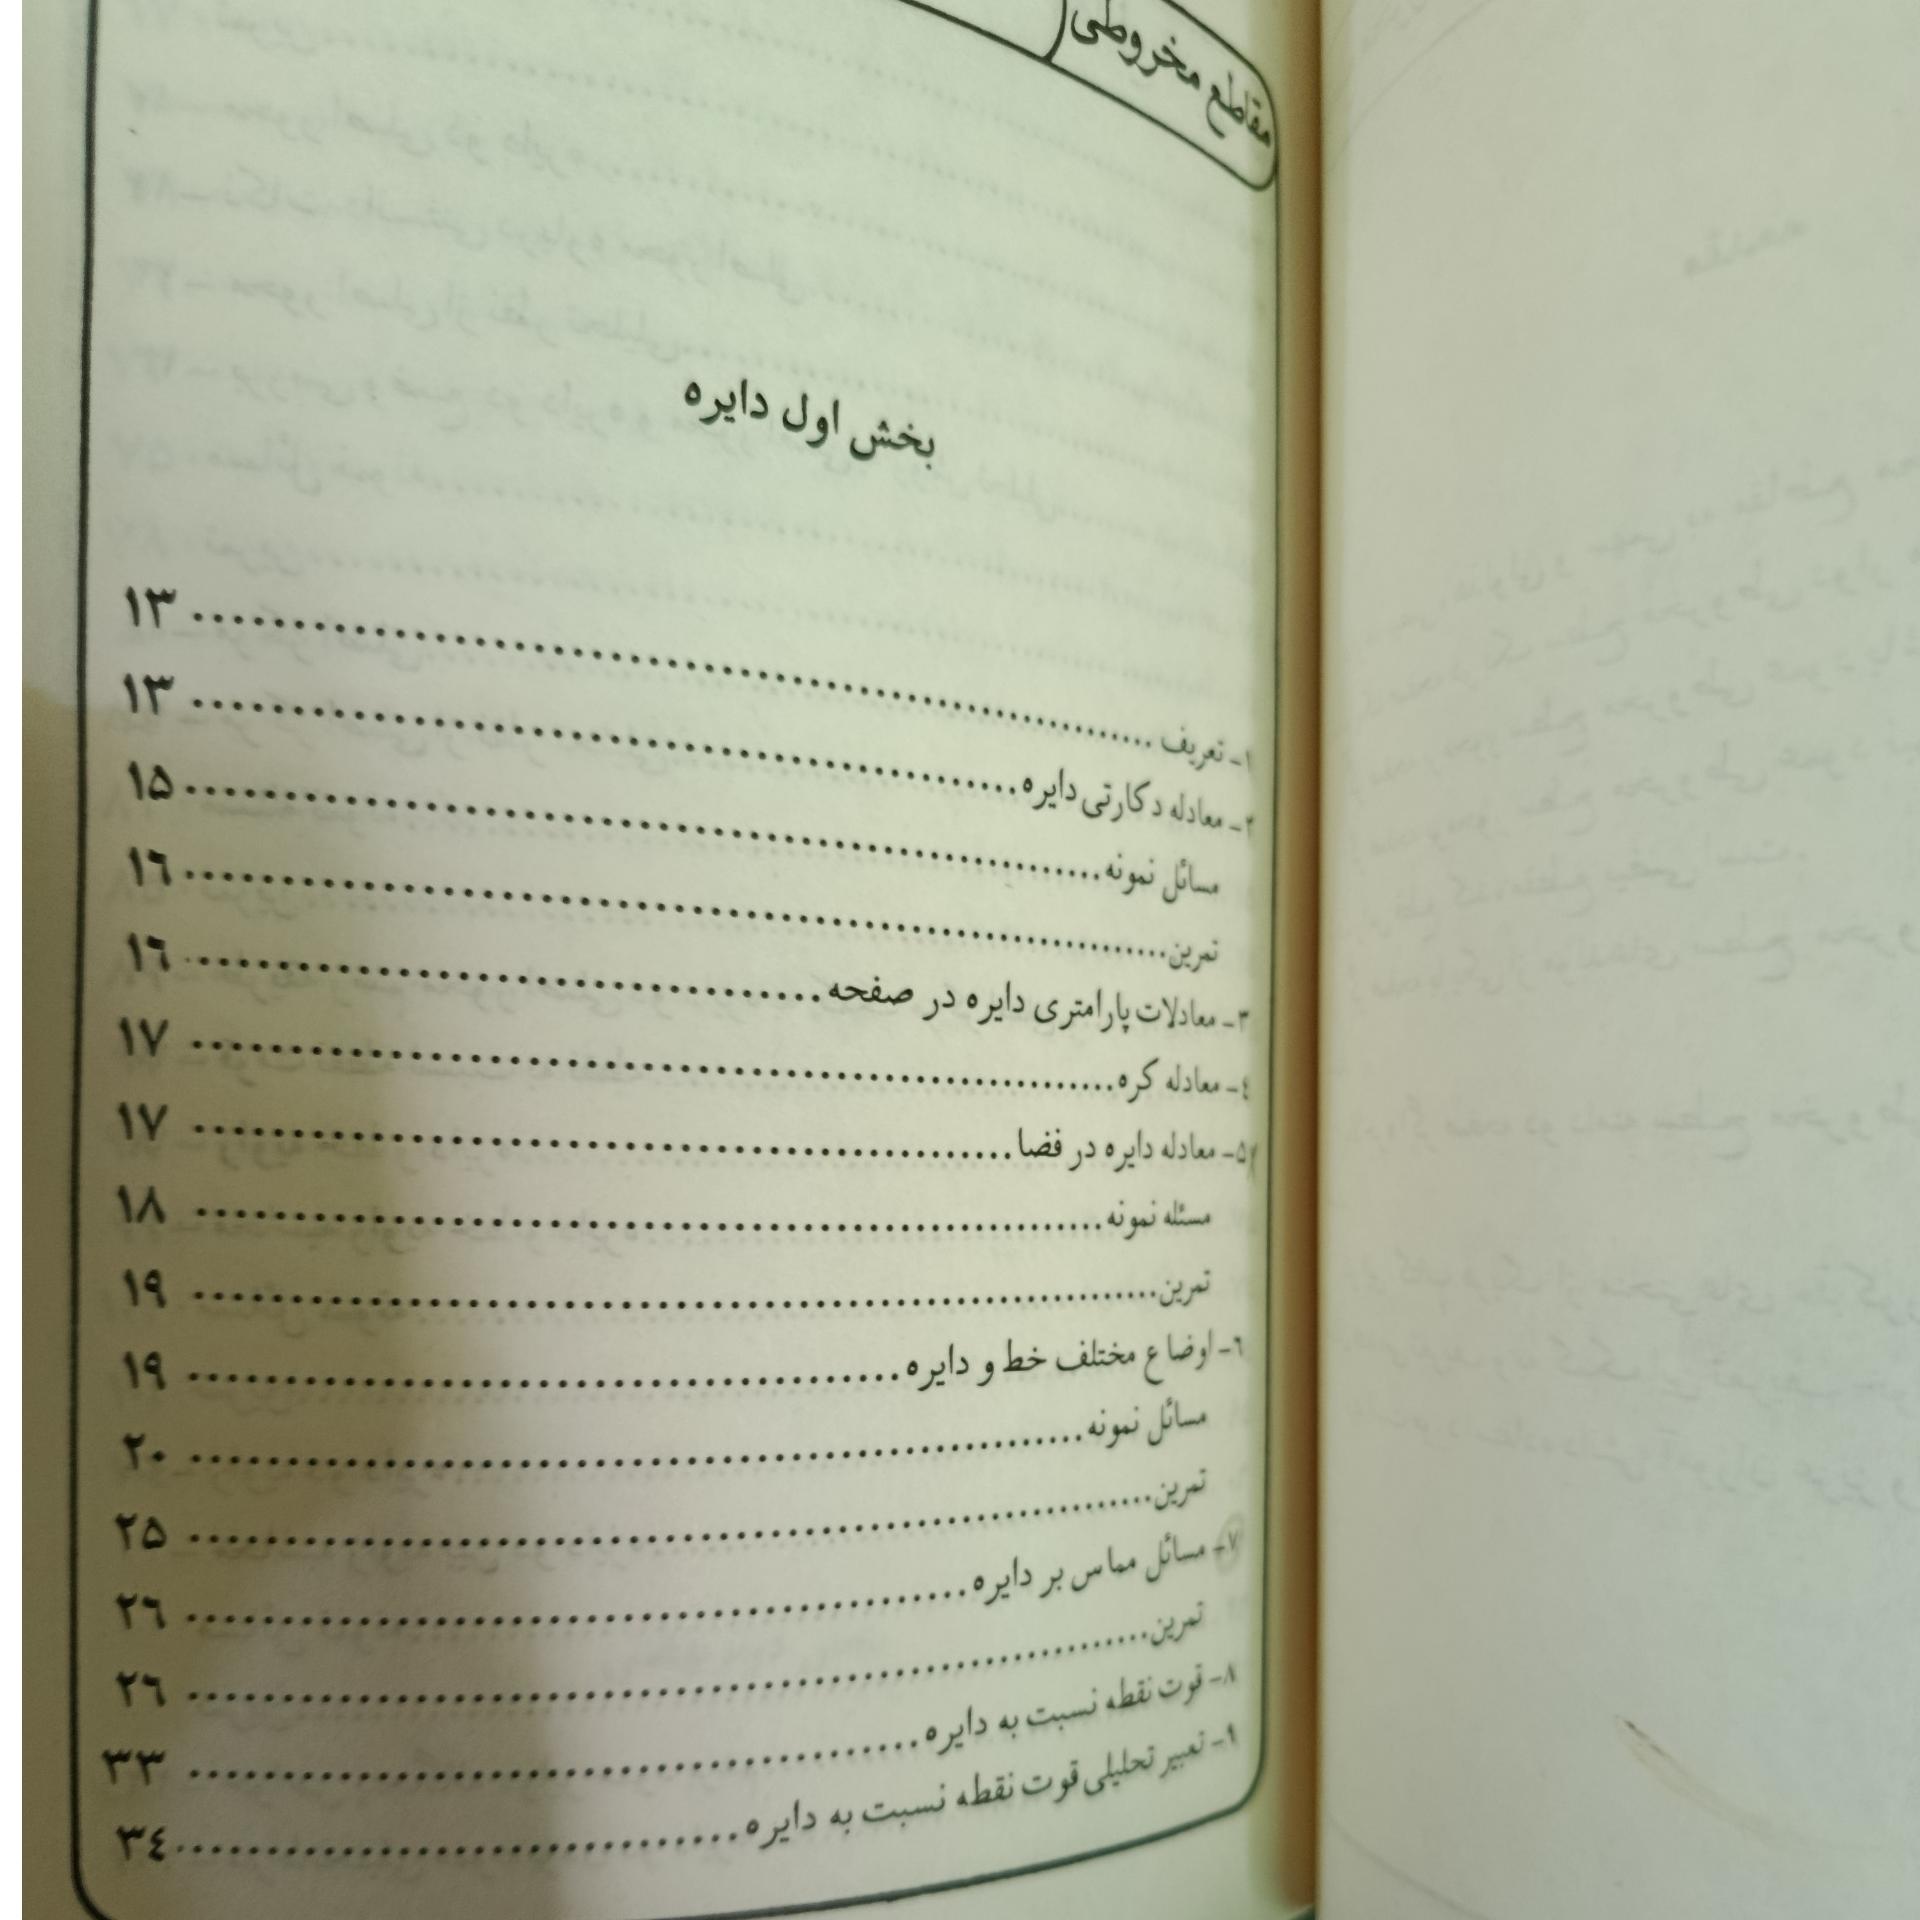 مقاطع مخروطی
بخش اول دایره
۱- تعریف ........ ۱۳
۲- معادله دکارتی دایره ........ ۱۳
مسائل نمونه ........ ۱۵
تمرین ........ ۱۶
۳- معادلات پارامتری دایره در صفحه ........ ۱۶
۴- معادله کره ........ ۱۷
۵- معادله دایره در فضا ........ ۱۷
مسئله نمونه ........ ۱۸
تمرین ........ ۱۹
۶- اوضاع مختلف خط و دایره ........ ۱۹
مسائل نمونه ........ ۲۰
تمرین ........ ۲۵
۷- مسائل مماس بر دایره ........ ۲۶
تمرین ........ ۲۶
۸- قوت نقطه نسبت به دایره ........ ۳۳
۹- تعبیر تحلیلی قوت نقطه نسبت به دایره ........ ۳۴